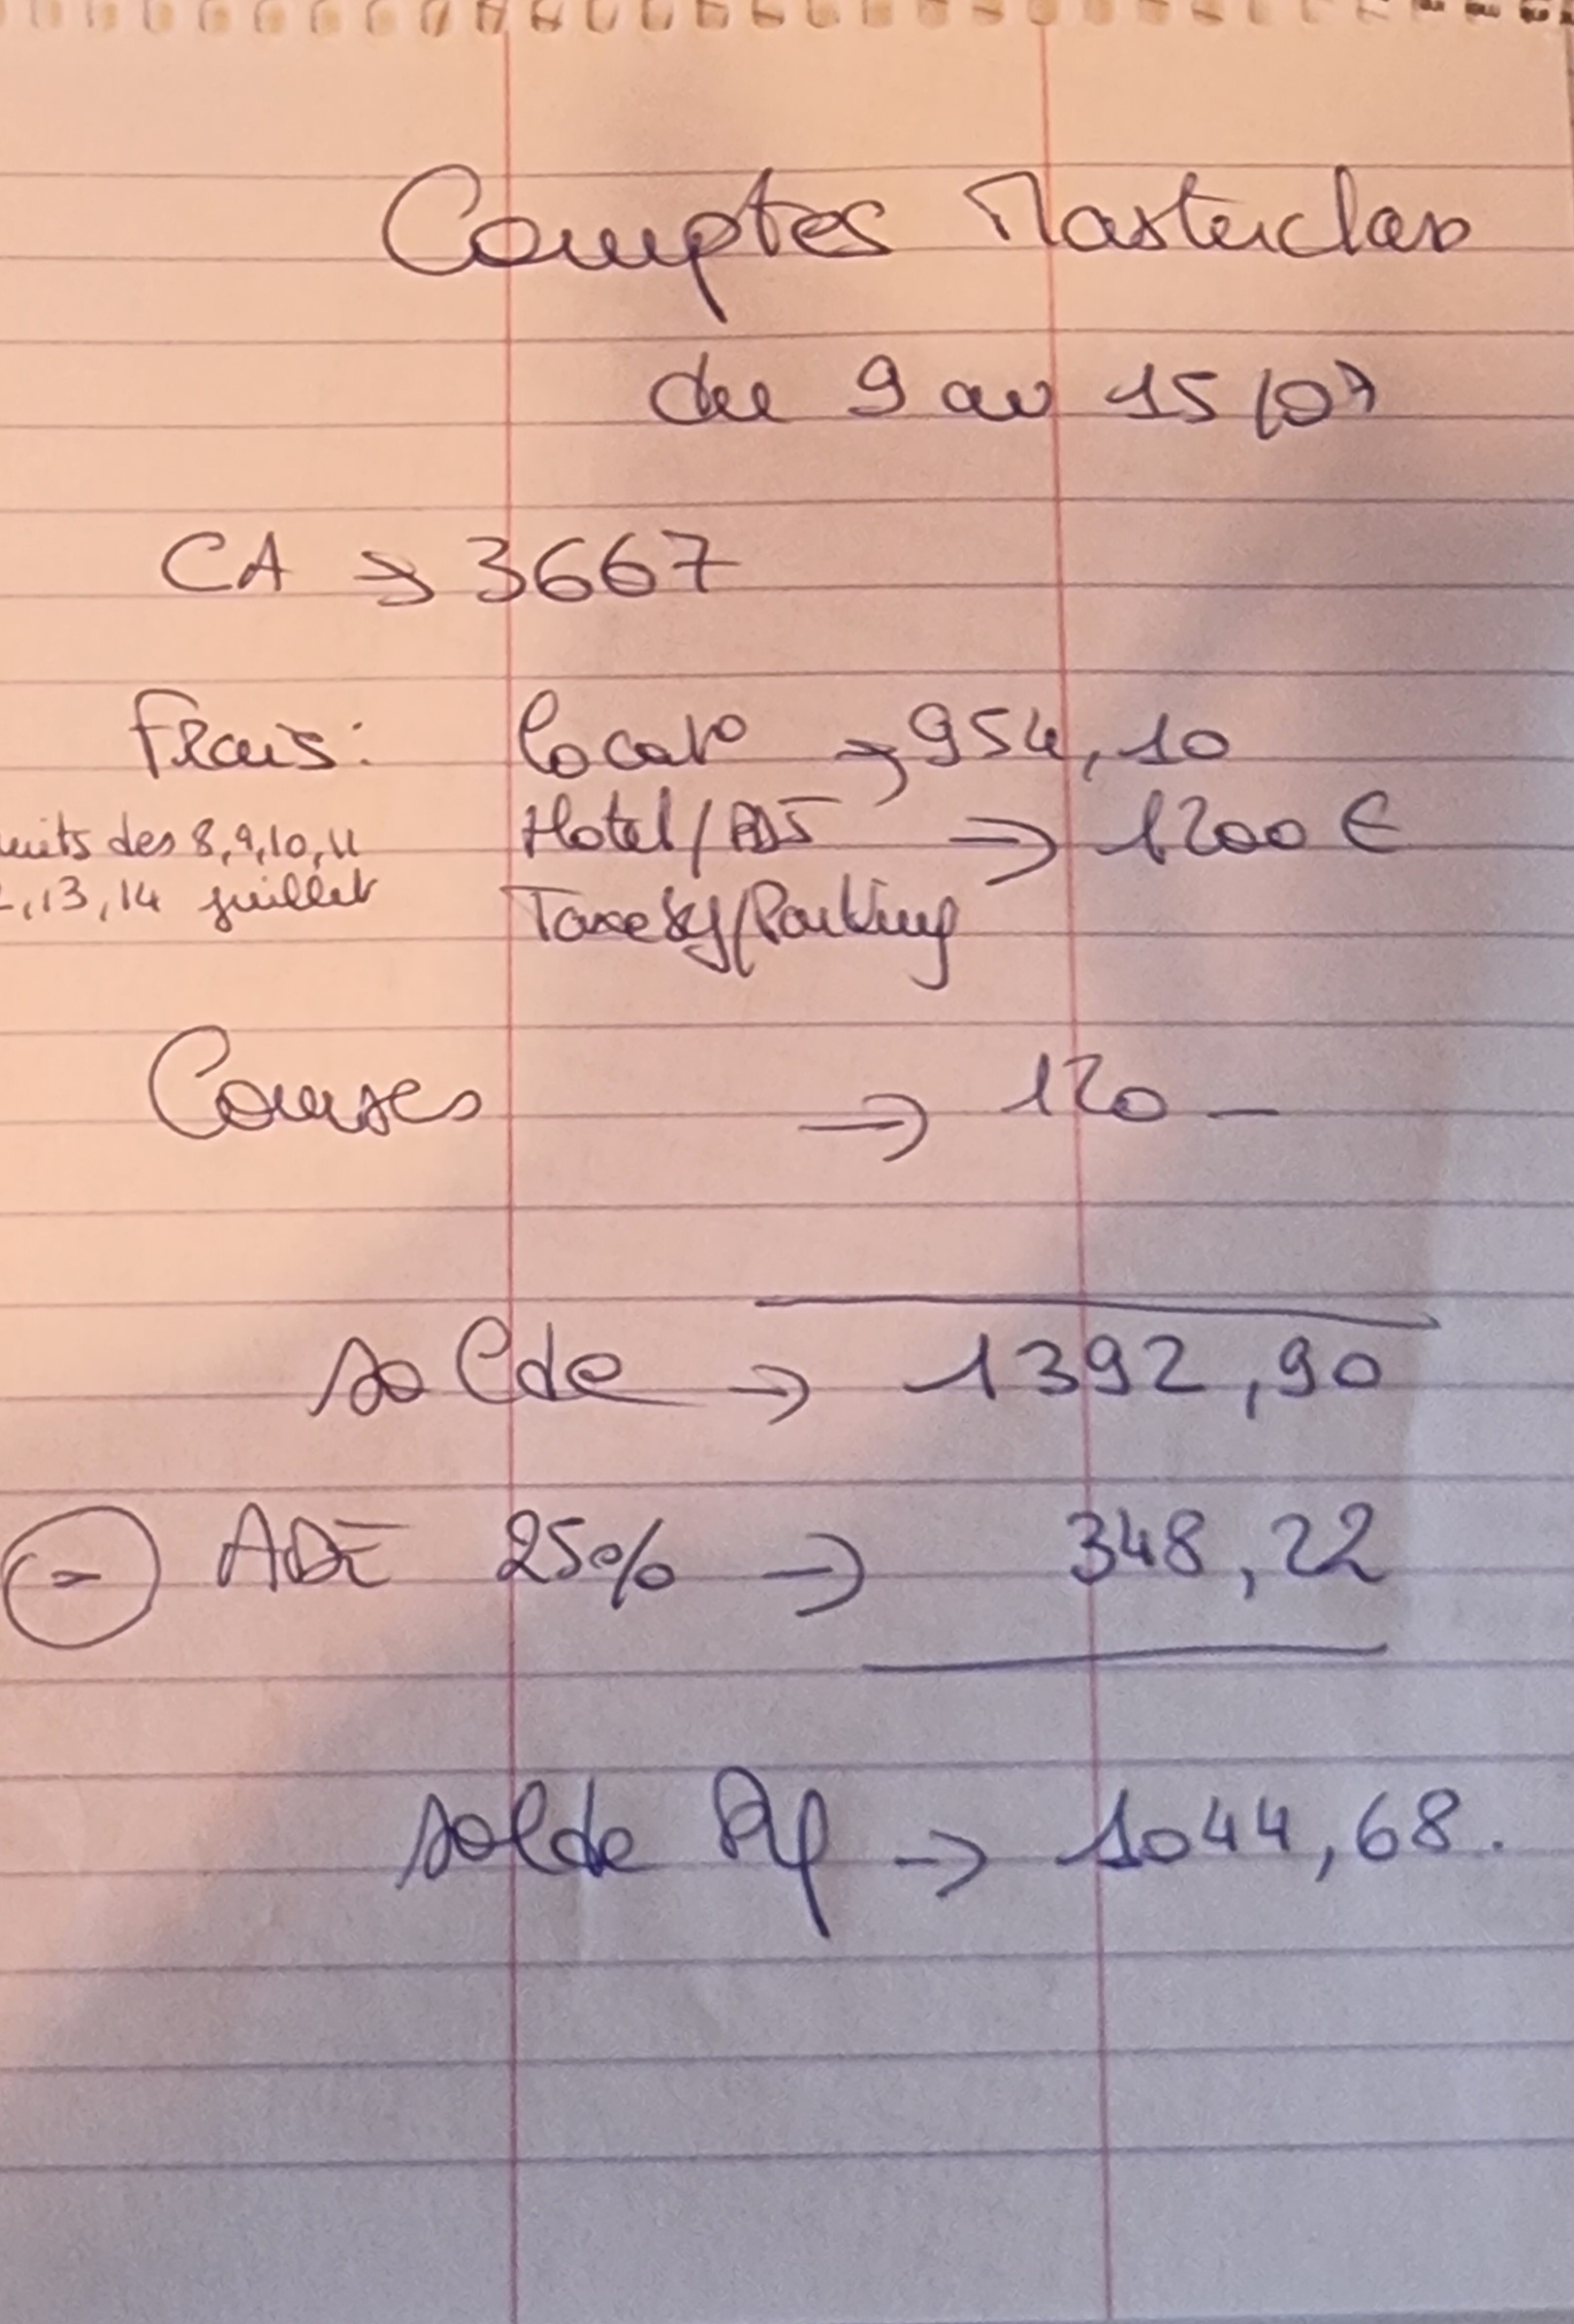 Comptes Masterclass
du 9 au 15/07
CA → 3667
Frais: locat° → 954,10
nuits des 8,9,10,11 Hotel/PDJ → 1200 €
2,13,14 juillet Taxe Sj/Parking
Courses → 120 —
solde → 1392,90
- ADE 25% → 348,22
solde → 1044,68.